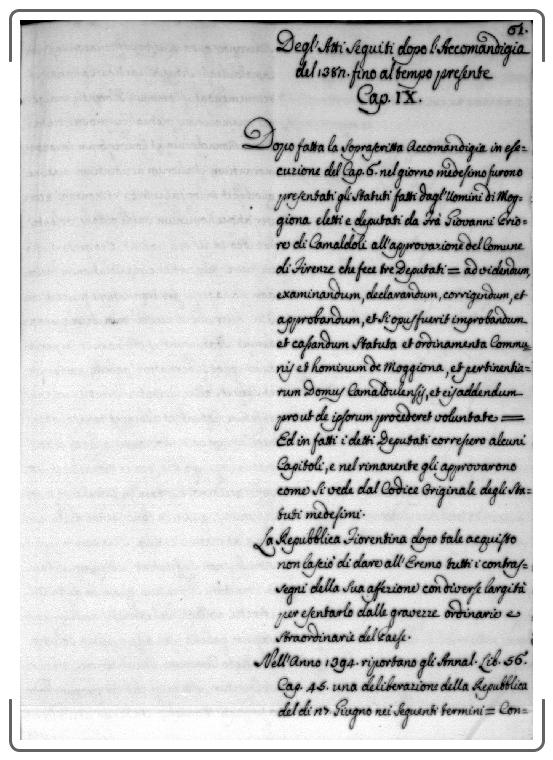 61.
Degl'Atti seguiti dopo l'Accomandigia
del 1387. fino al tempo presente
Cap. IX.
Dopo fatta la soprascritta Accomandigia in ese-
cuzione del Cap. 6. nel giorno medesimo furono
presentati gli Statuti fatti dagl'Uomini di Mog-
giona eletti e deputati da Frà Giovanni Prio-
re di Camaldoli all'approvazione del Comune
di Firenze che fece tre Deputati = ad videndum,
examinandum, declarandum, corrigendum, et
approbandum, et si opus fuerit improbandum
et cassandum Statuta et ordinamenta Commu-
nis et hominum de Moggiona, et pertinentia-
rum Domus Camaldulensis, et eis addendum
prout de ipsorum procederet voluntate =
Ed in fatti i detti Deputati corressero alcuni
Capitoli, e nel rimanente gli approvarono
come si vede dal Codice Originale degli Sta-
tuti medesimi.
La Repubblica Fiorentina dopo tale acquisto
non lasciò di dare all'Eremo tutti i contras-
segni della sua affezione con diverse largità
per esentarlo dalle gravezze ordinarie e
straordinarie del Paese.
Nell'Anno 1394. riportano gli Annal. Lib. 56.
Cap. 45. una deliberazione della Repubblica
del dì 17. Giugno nei seguenti termini = Con-